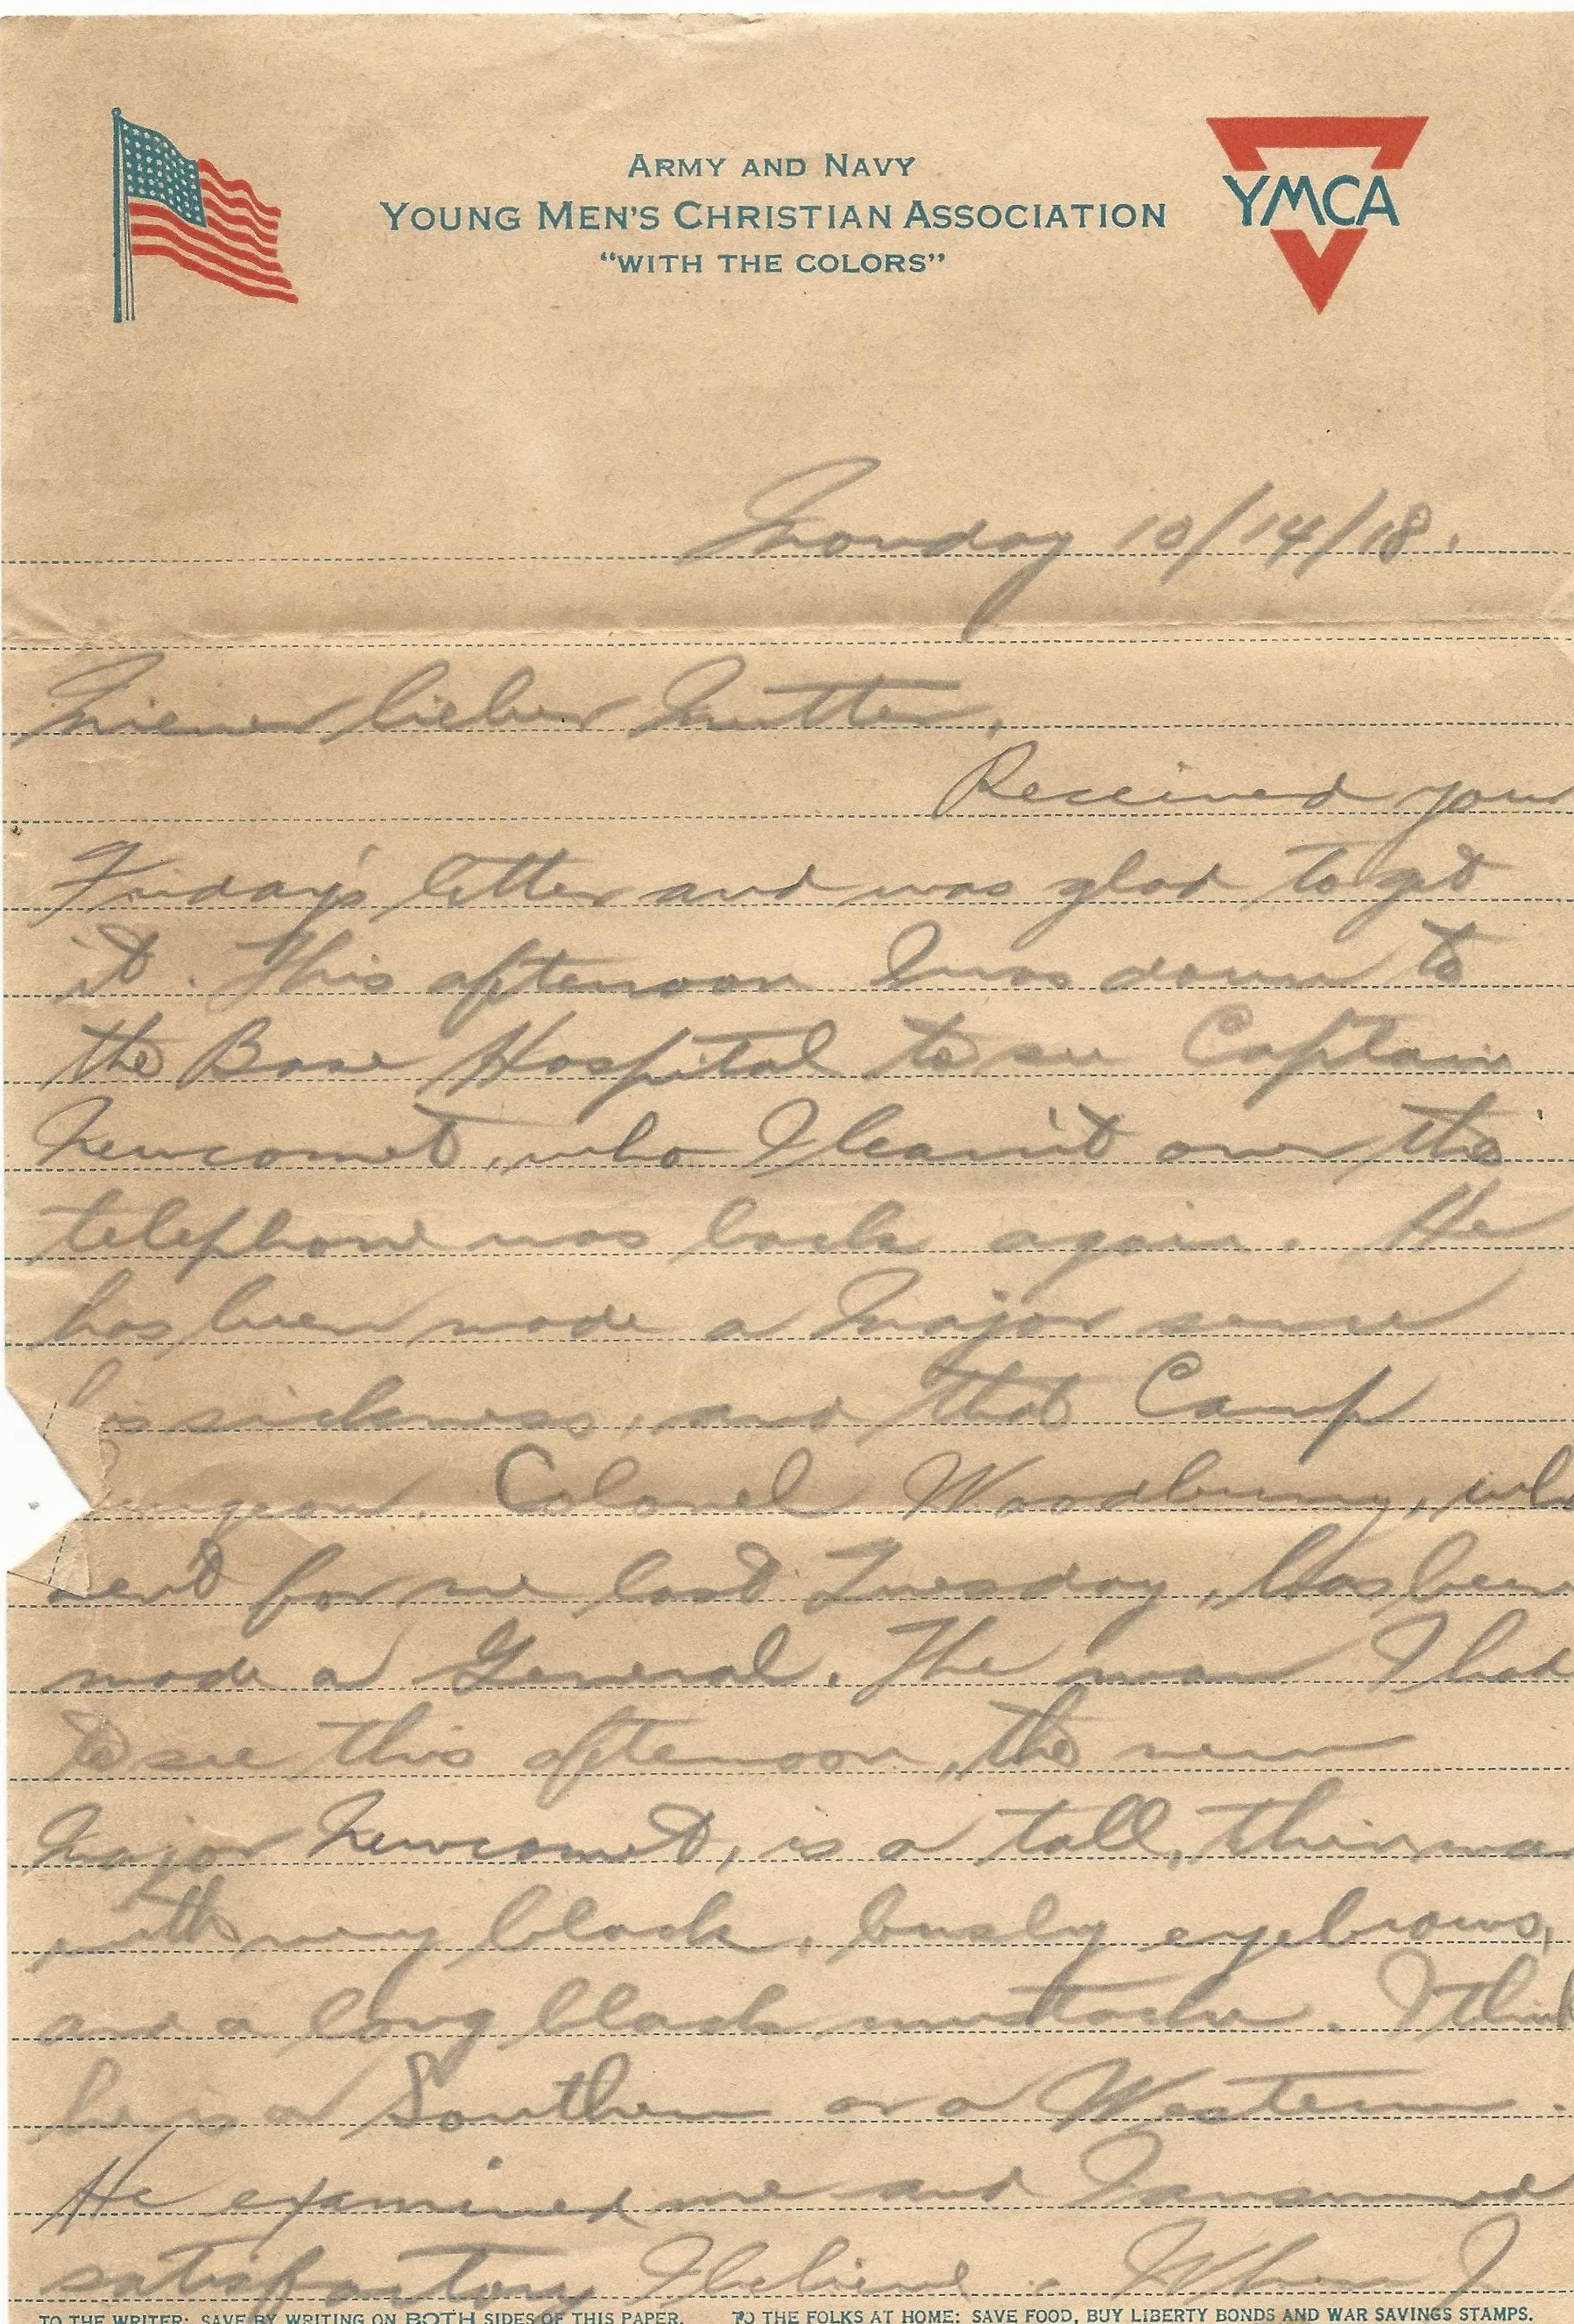 ARMY AND NAVY
YOUNG MEN'S CHRISTIAN ASSOCIATION
"WITH THE COLORS"
YMCA
Monday 10/14/18.
Miener lieber Mutter,
Received your
Friday's letter and was glad to get
it. This afternoon I was down to
the Base Hospital to see Captain
Newcomet, who I learn't over the
telephone was back again. He
has been made a Major since
his sickness, and that Camp
Surgeon, Colonel Woodbury, who
sent for me last Tuesday, has been
made a General. The man I had
to see this afternoon, the new
Major Newcomet, is a tall, thin man
with very black, bushy eyebrows,
and a long black mustache. I think
he is a Southern or a Western.
He examined me and I answered
satisfactory I believe. When I
TO THE WRITER: SAVE BY WRITING ON BOTH SIDES OF THIS PAPER. TO THE FOLKS AT HOME: SAVE FOOD, BUY LIBERTY BONDS AND WAR SAVINGS STAMPS.